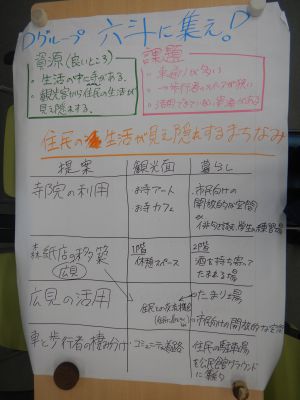 Dグループ 六斗に集え。D
資源(良いところ)
・生活の中に寺がある。
・観光客から住民の生活が
見え隠れする。
課題
・車通りが多い
・活用できていない資源がある
住民の生活が見え隠れするまちなみ
提案 観光面 暮らし
寺院の利用
お寺アート
お寺カフェ
・市民向けの
開放的な空間
森紙店の移築
広見
1階
休憩スペース
2階
酒を持ち寄って
たまれる場
広見の活用
たまり場
・市民向けの開放的な空間
車と歩行者の棲み分け
コミュニティ道路
住民の駐車場
を公民館グラウンド
に集約